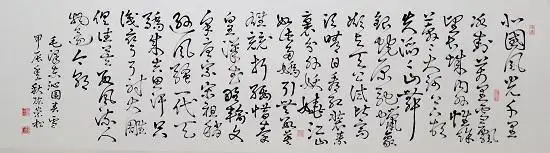 北國風光千里
冰封萬里雪飄
望長城內外惟餘
莽莽大河上下頓
失滔滔山舞
銀蛇原馳蠟象
欲與天公試比高
須晴日看紅裝素
裹分外妖嬈江山
如此多嬌引無數英
雄競折腰惜秦
皇漢武略輸文
采唐宗宋祖稍
遜風騷一代天
驕成吉思汗只
識彎弓射大雕
俱往矣數風流人
物還看今朝
毛澤東沁園春雪
甲辰